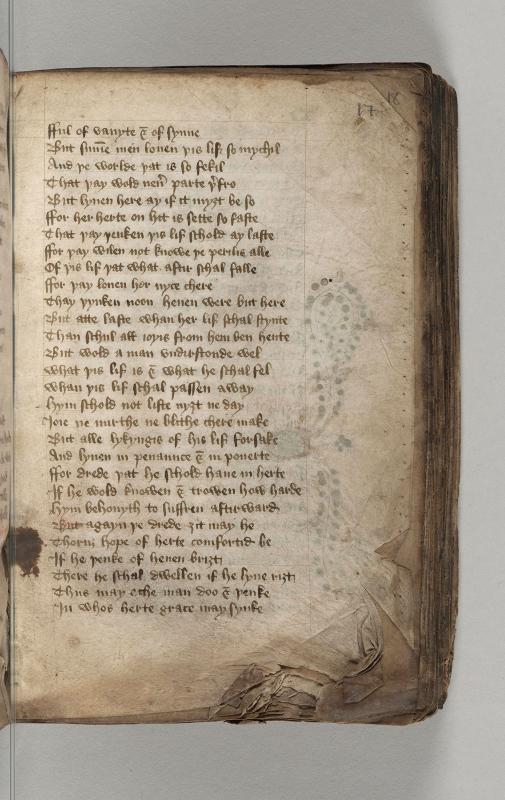 17 18
Ful of vanyte & of synne
But su̅me men louen þis lif so mychil
And þe worlde þat is so fekil
That þay wold neuer parte þerfro
But lyuen here ay if it myȝt be so
Ffor her herte on hit is sette so faste
That þay þenken þis lif schold ay laste
Ffor þay wilen not knowe þe perilis alle
Of þis lif þat what aftir schal falle
Ffor þay louen her nyce chere
Thay þynken noon heuen were but here
But atte laste whan her lif schal stynte
Than schul all ioyus from hem ben hente
But wold a man vndirstonde wel
what þis lif is & what he schal fel
whan þis lif schal passen away
hym schold not liste nyȝt ne day
Joie ne mirthe ne blithe chere make
But alle lykyngis of his lif forsake
And lyuen in penaunce & in pouerte
Ffor drede þat he schold haue in herte
If he wold knowen & trowen how harde
hym behouyth to suffren aftirward
But agayn þe drede ȝit may he
Thoruȝ hope of herte comfortid be
If he þenke of heuen briȝt
There he schal dwellen if he lyue riȝt
Thus may eche man doo & þenke
In whos herte grace may synke